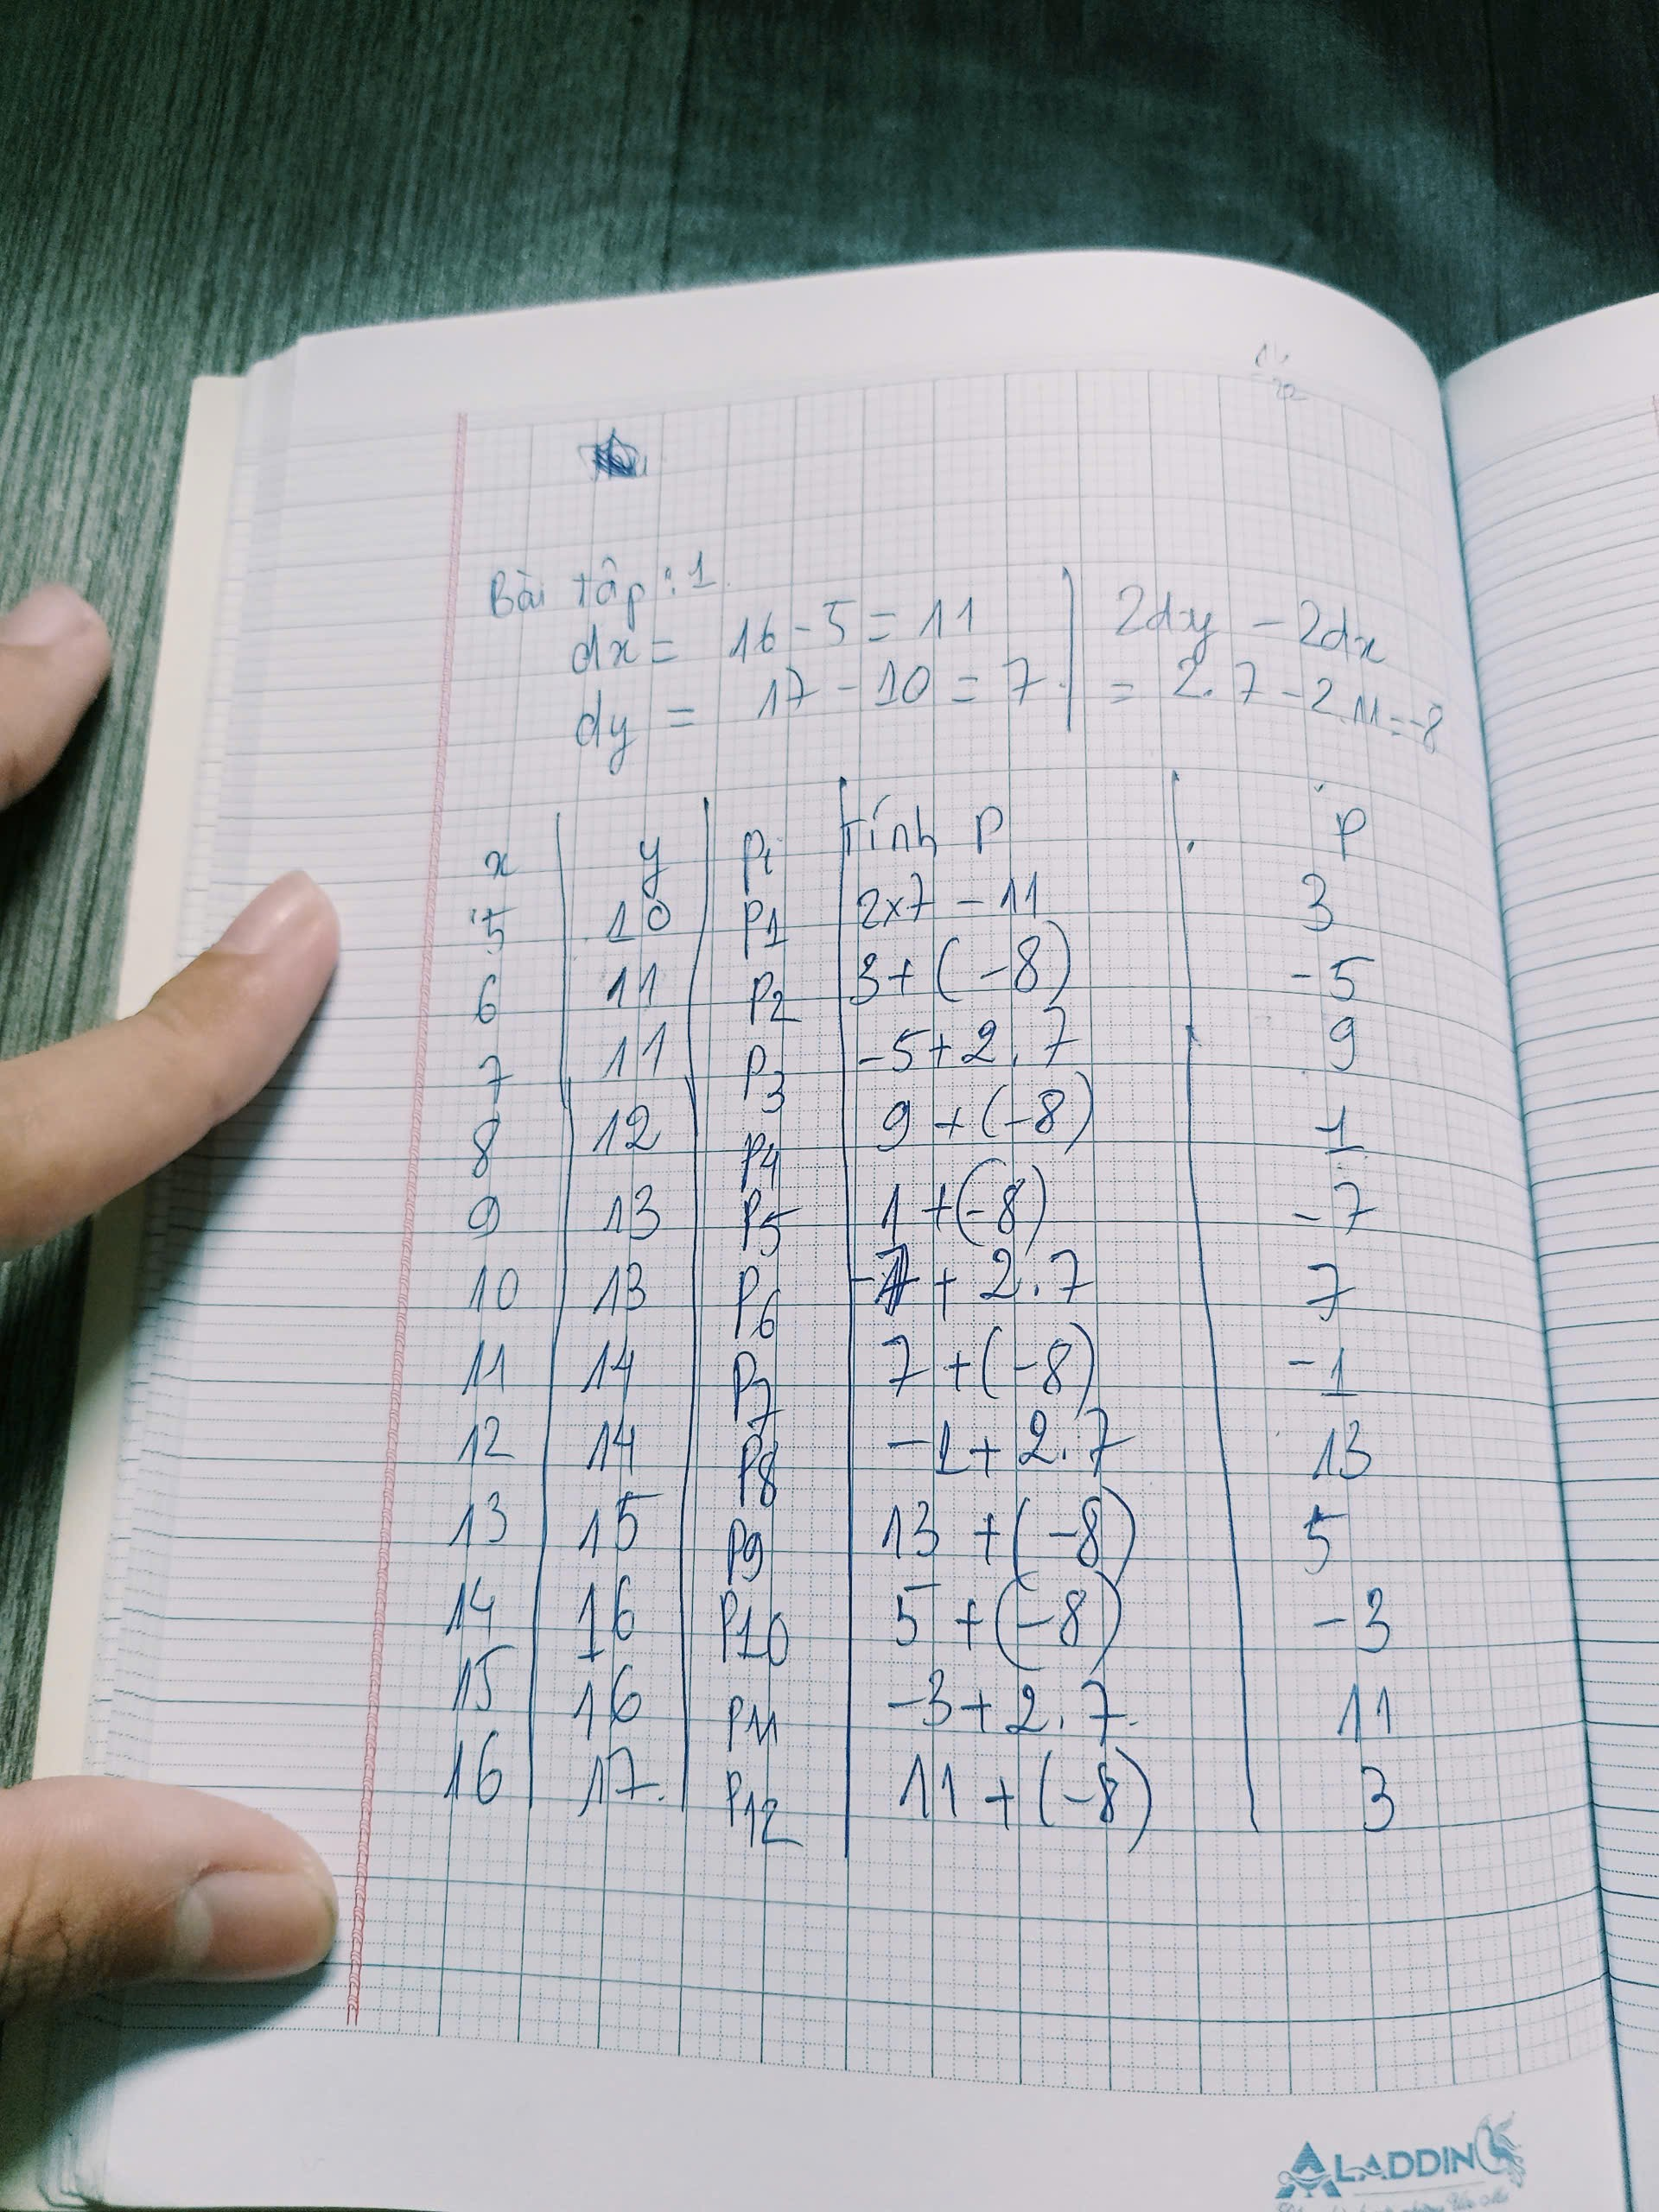 Bài tập : 1.
dx = 16 - 5 = 11 | 2dy - 2dx
dy = 17 - 10 = 7. | = 2.7 - 2.11 = -8
x | y | Pi | tính P | P
5 | 10 | P1 | 2x7 - 11 | 3
6 | 11 | P2 | 3 + (-8) | -5
7 | 11 | P3 | -5 + 2.7 | 9
8 | 12 | P4 | 9 + (-8) | 1
9 | 13 | P5 | 1 + (-8) | -7
10 | 13 | P6 | -7 + 2.7 | 7
11 | 14 | P7 | 7 + (-8) | -1
12 | 14 | P8 | -1 + 2.7 | 13
13 | 15 | P9 | 13 + (-8) | 5
14 | 16 | P10 | 5 + (-8) | -3
15 | 16 | P11 | -3 + 2.7. | 11
16 | 17. | P12 | 11 + (-8) | 3
ALADDIN